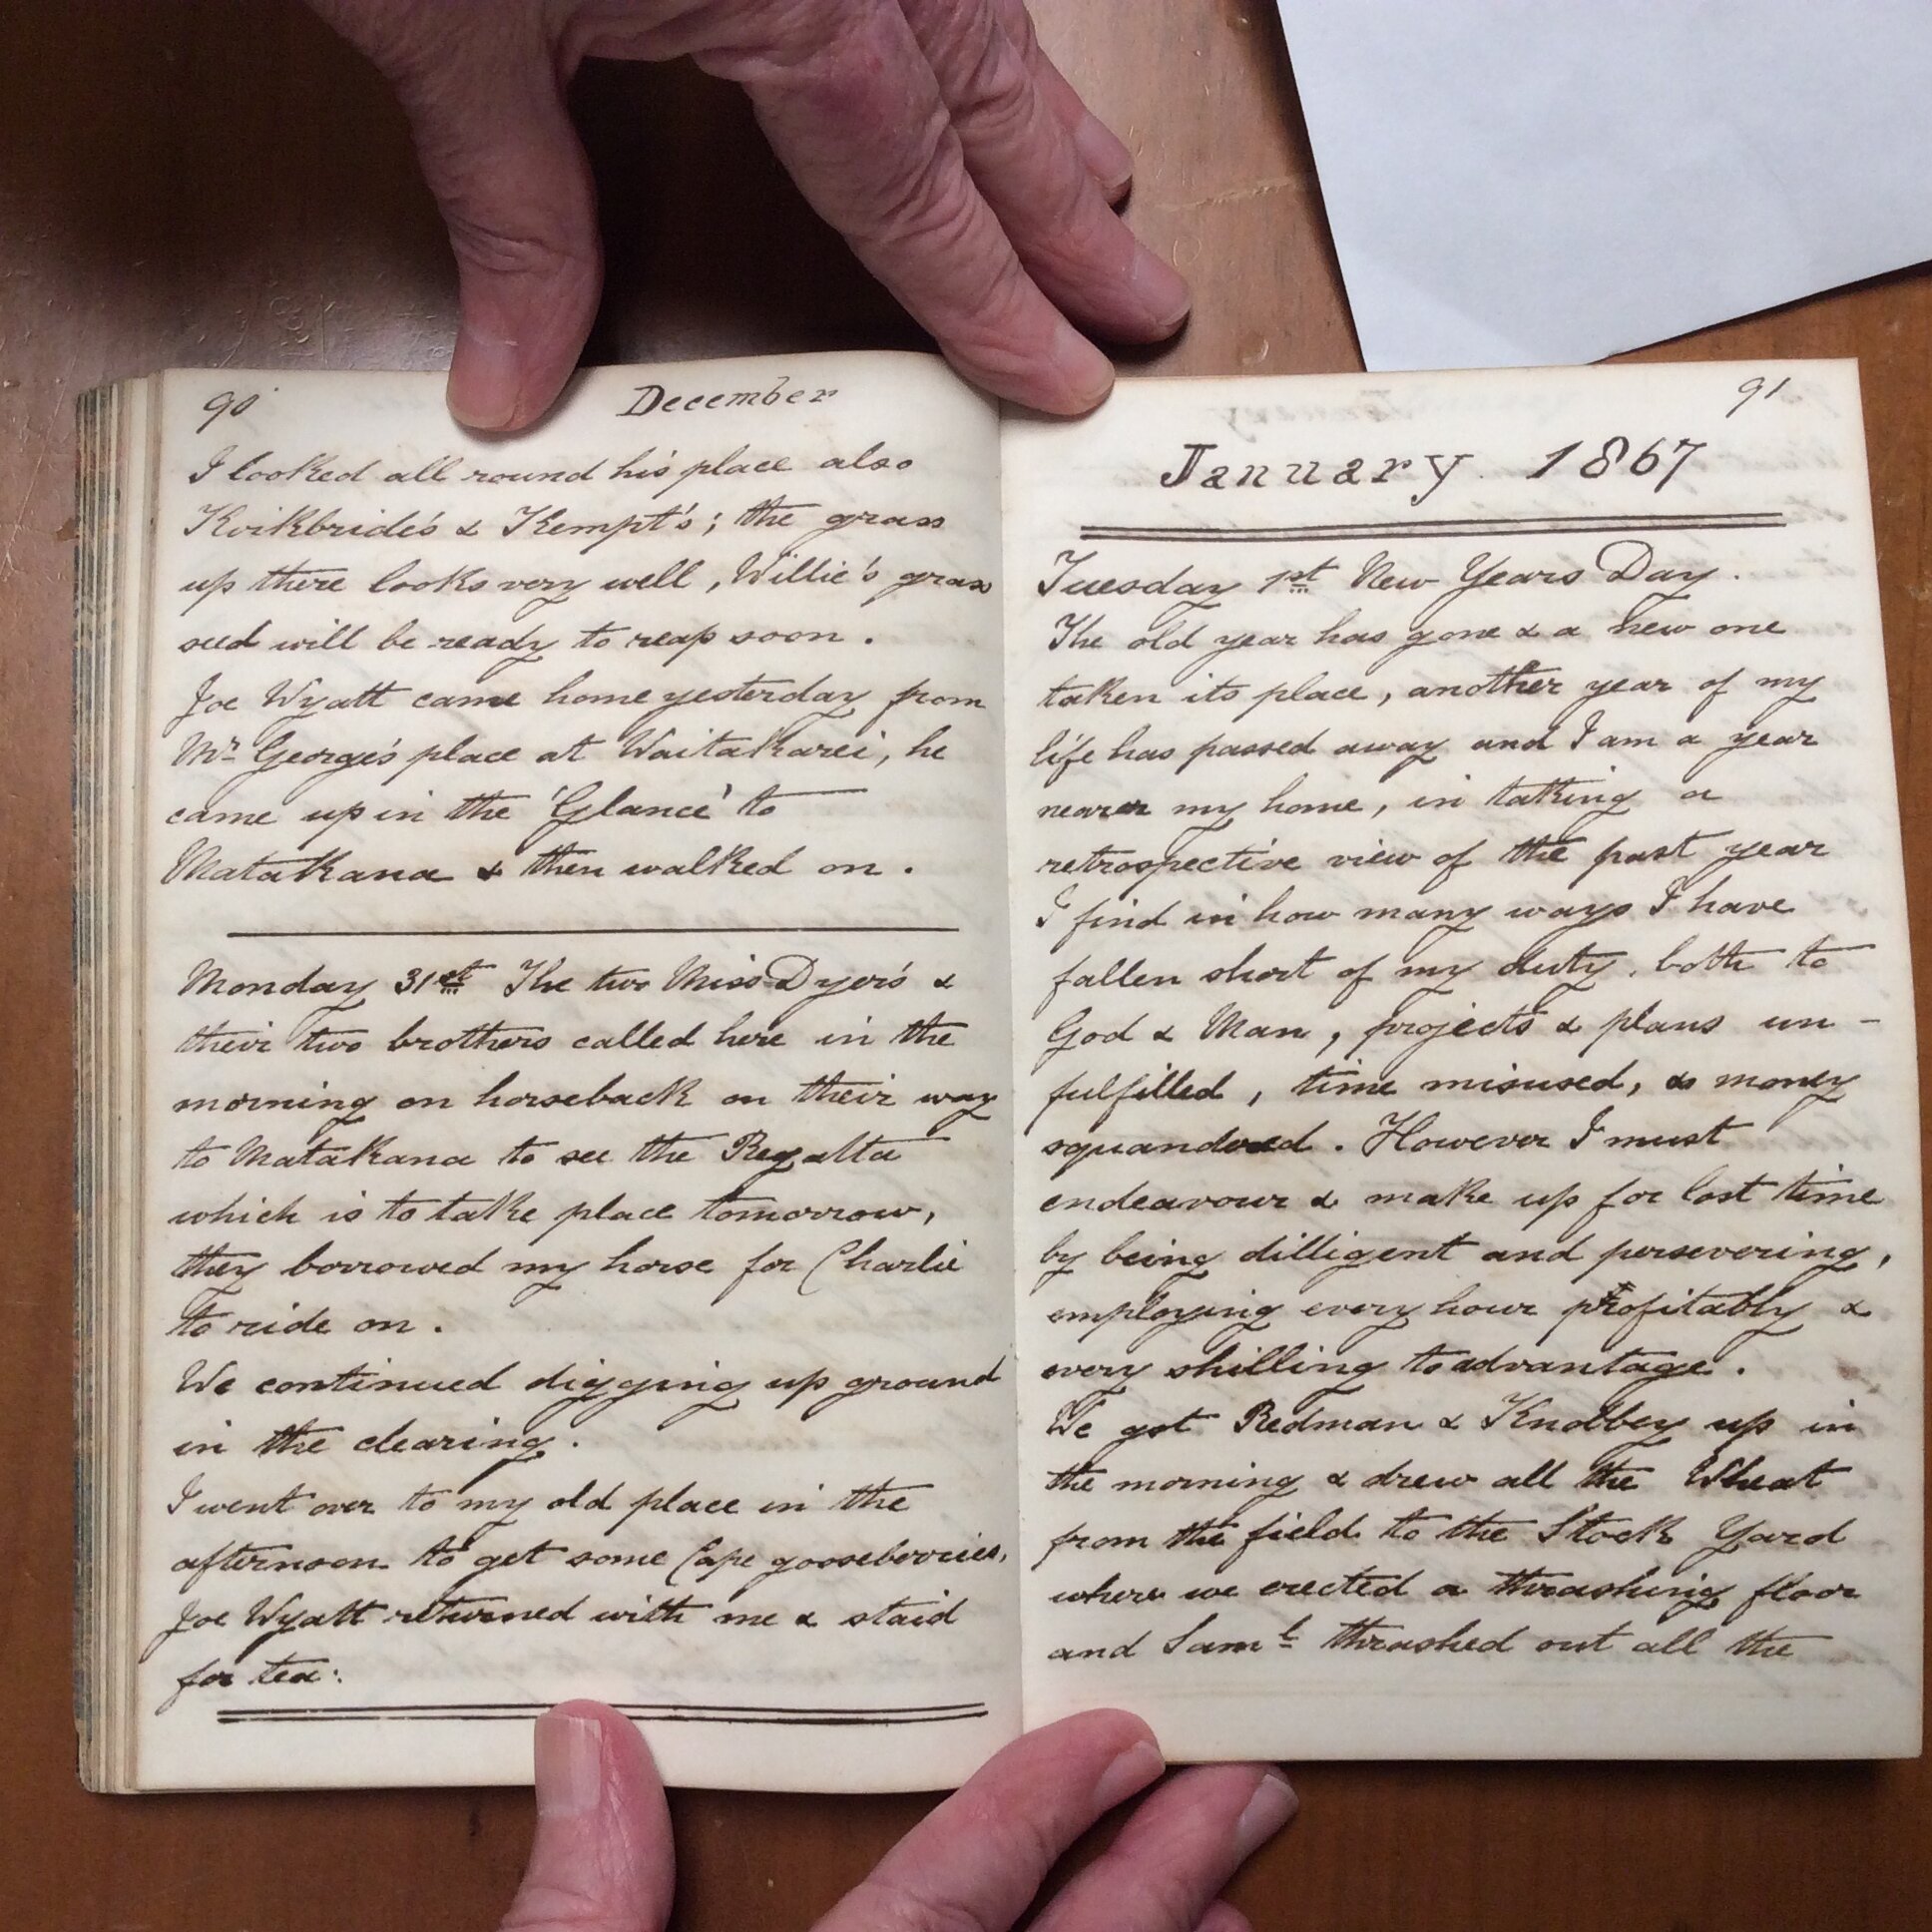 90
December
I looked all round his place also
Kirkbride's & Kempt's; the grass
up there looks very well, Willie's grass
seed will be ready to reap soon.
Joe Wyatt came home yesterday from
Mr George's place at Waitakarei, he
came up in the 'Glance' to
Matakana & then walked on.
Monday 31st The two Miss Dyer's &
their two brothers called here in the
morning on horseback on their way
to Matakana to see the Regatta
which is to take place tomorrow,
they borrowed my horse for Charlie
to ride on.
We continued digging up ground
in the clearing.
I went over to my old place in the
afternoon to get some Cape gooseberries,
Joe Wyatt returned with me & staid
for tea:
91
January. 1867
Tuesday 1st New Years Day.
The old year has gone & a new one
taken its place, another year of my
life has passed away and I am a year
nearer my home, in taking a
retrospective view of the past year
I find in how many ways I have
fallen short of my duty, both to
God & Man, projects & plans un-
fulfilled, time misused, & money
squandered. However I must
endeavour & make up for lost time
by being dilligent and persevering,
employing every hour profitably &
every shilling to advantage.
We got Redman & Knobbey up in
the morning & drew all the Wheat
from the field to the Stock Yard
where we erected a thrashing floor
and Saml thrashed out all the